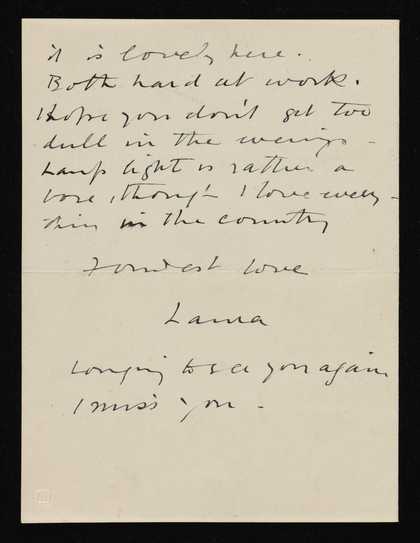 it is lovely here.
Both hard at work.
I hope you don't get too
dull in the evenings -
Lamp light is rather a
bore, though I love every -
thing in the country
Fondest love
Laura
Longing to see you again
I miss you -